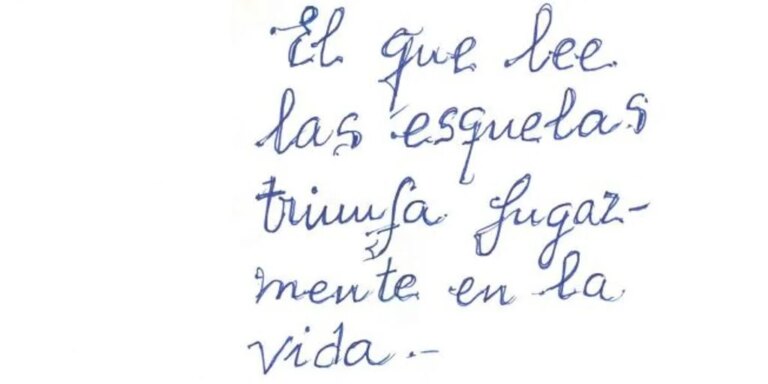 El que lee
las esquelas
triunfa fugaz-
mente en la
vida.-